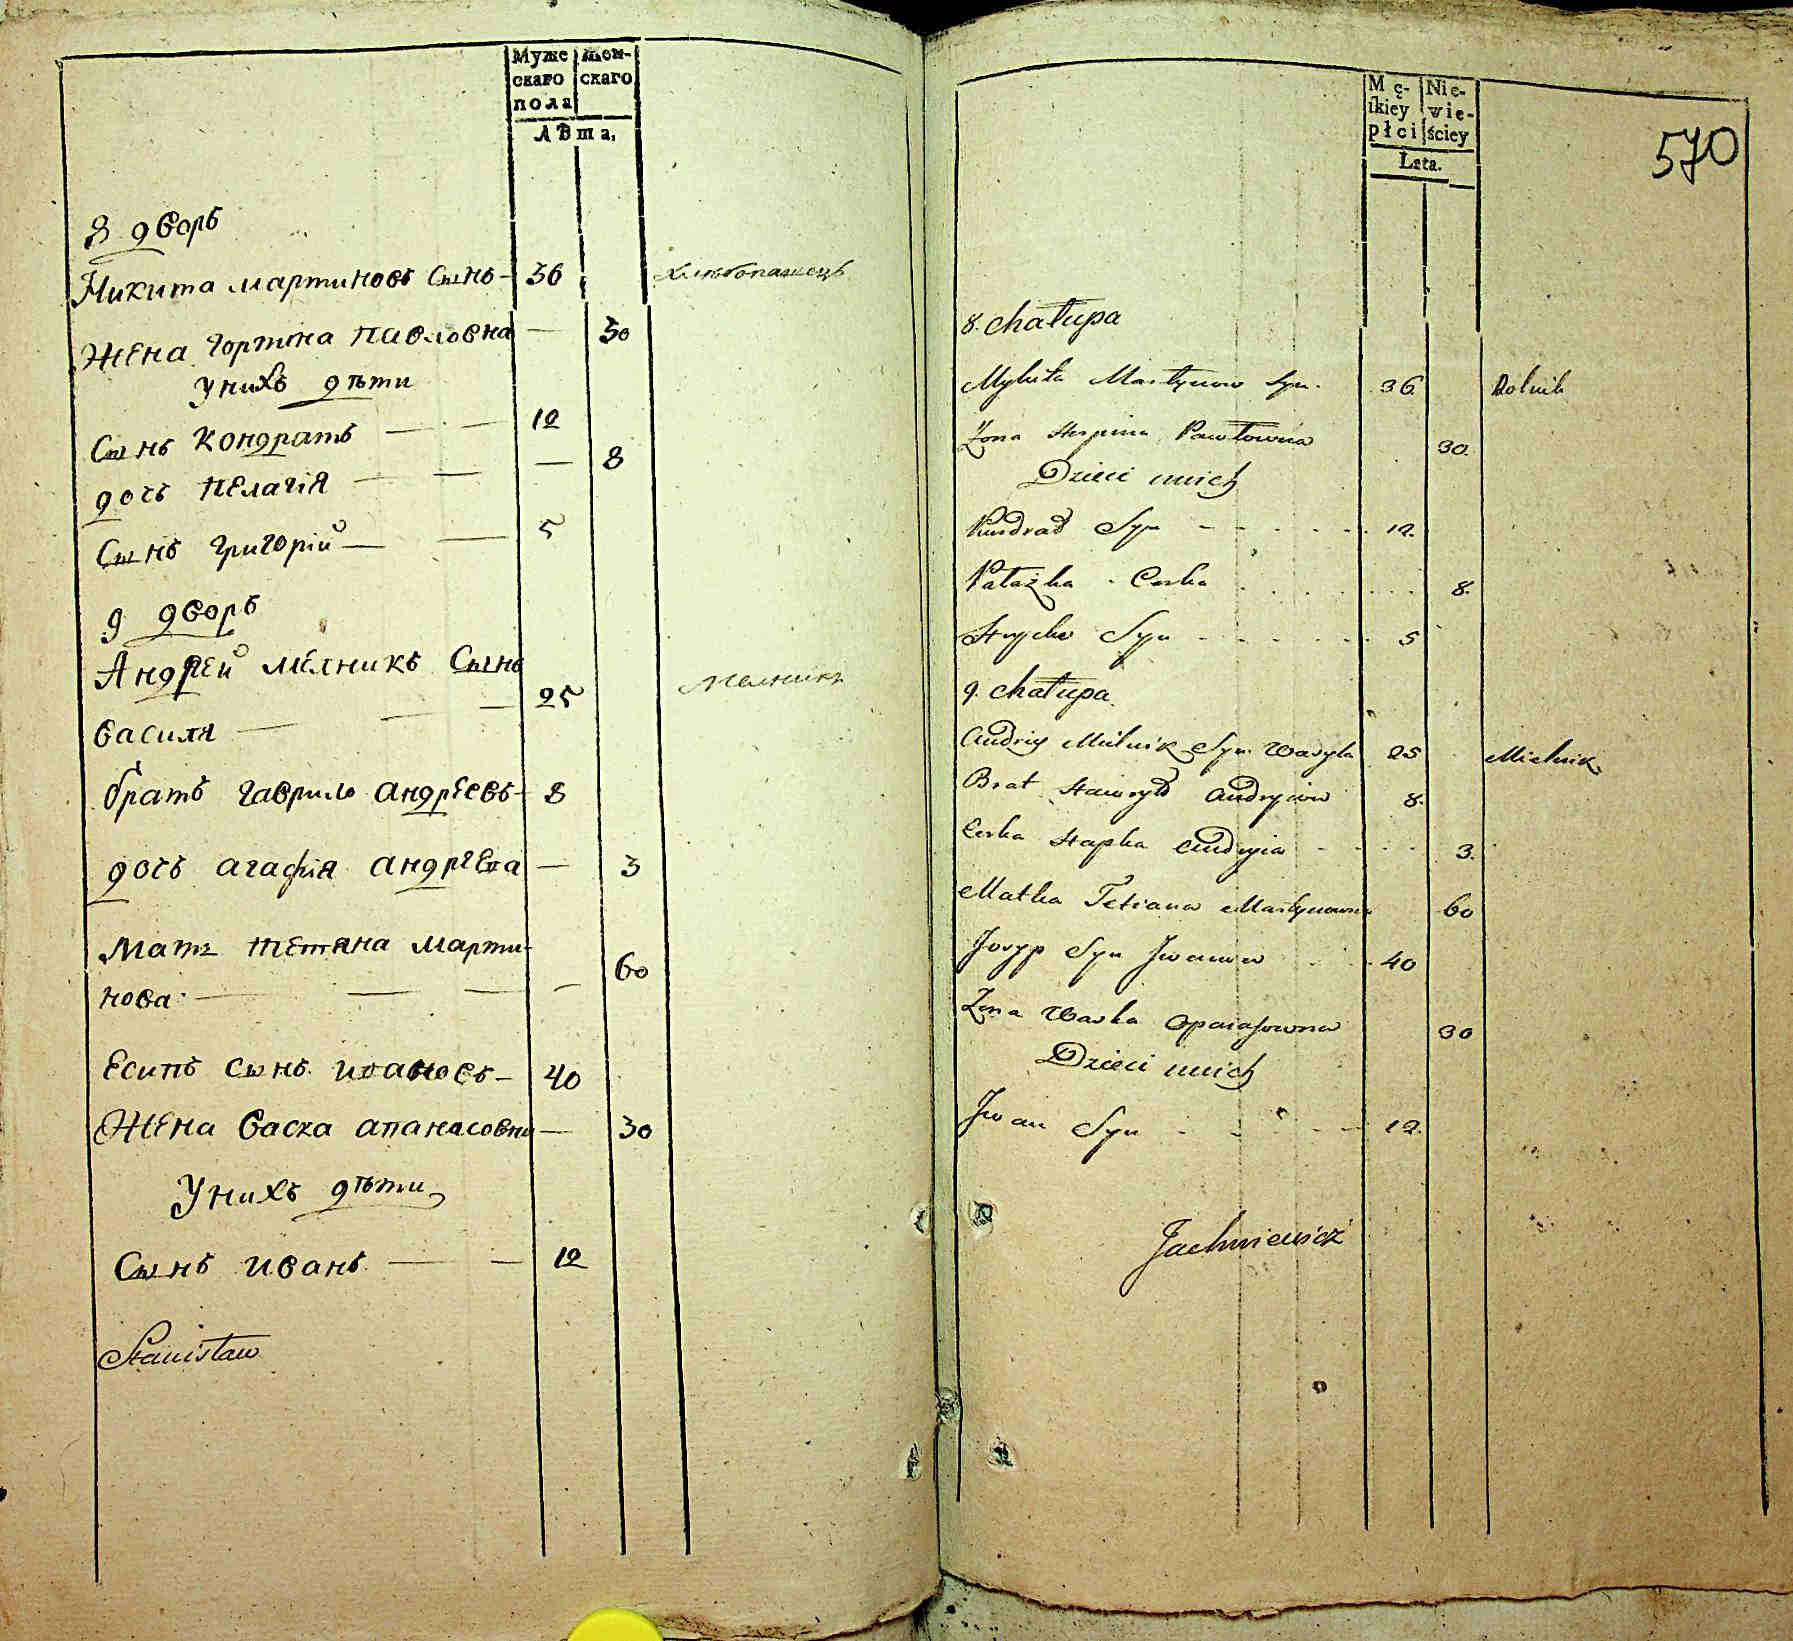 Муже женскаго
скаго скаго
пола
Лѣта,
8 дворъ
Никита мартиновъ Сынъ - 36 хлебопашецъ
Жена гортина павловна — 30
У нихъ дѣти
Сынъ Кондратъ — — 12
дочь пелагія — — — 8
Сынъ григорій — — 5
9 дворъ
Андрей мелникъ Сынъ
василя — — — 25 мелникъ
братъ гаврило андреевъ - 8
дочь агафія андреева — 3
Мать тетяна марти-
нова — — — — 60
Есипъ сынъ ивановъ - 40
Жена васка апанасовна — 30
У нихъ дѣти
Сынъ иванъ — — 12
Stanisław
Mę- Nie-
ſkiey wie-
płci ściey
Lata.
570
8. chałupa
Mykita Martynow Syn. 36 Rolnik
Żona Horpina Pawłowna 30.
Dzieci unich
Kundrad Syn - - - - - 12.
Pałażka Corka . . . . . . 8.
Hrycko Syn - - - - - 5
9. chałupa
Andriy Mielnik Syn Wasyla 25 Mielnik
Brat Hawryło Andryiow 8.
Corka Hapka Andryia - - - - 3.
Matka Tetiana Martynowna 60
Josyp Syn Iwanow . . . 40
Żona Waska Apanasowna 30
Dzieci unich
Iwan Syn - - - - - 12.
Jachniewicz